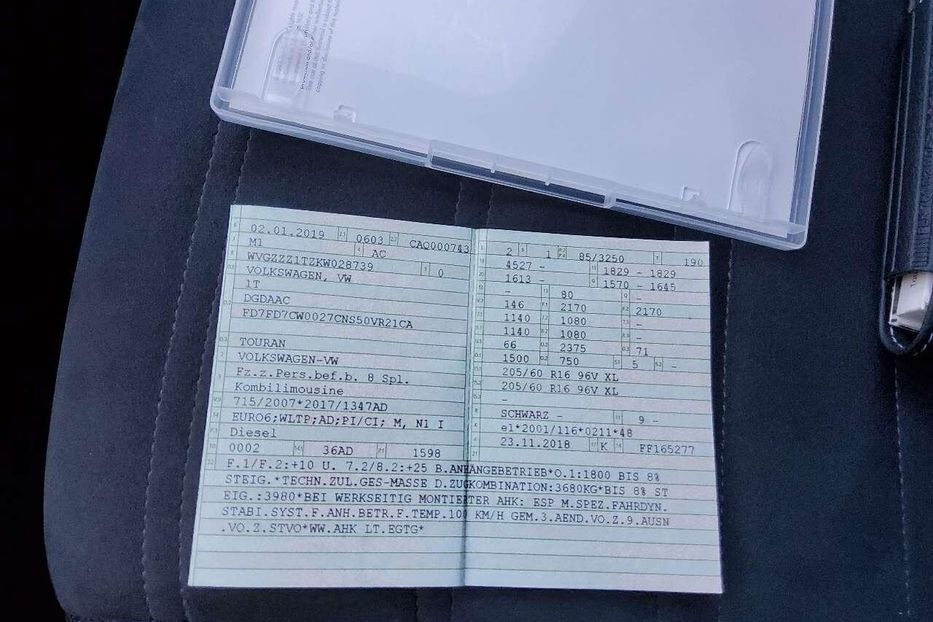 02.01.2019 0603 CAQ000743
M1 AC
WVGZZZ1TZKW028739 0
VOLKSWAGEN, VW
1T
DGDAAC
FD7FD7CW0027CNS50VR21CA
TOURAN
VOLKSWAGEN-VW
Fz.z.Pers.bef.b. 8 Spl.
Kombilimousine
715/2007*2017/1347AD
EURO6;WLTP;AD;PI/CI; M, N1 I
Diesel
0002 36AD 1598
2 1 85/3250 190
4527 - 1829 - 1829
1613 - 1570 - 1645
- 80 -
146 2170 2170
1140 1080 -
1140 1080 -
66 2375 71
1500 750 5 -
205/60 R16 96V XL
205/60 R16 96V XL
-
SCHWARZ - 9 -
e1*2001/116*0211*48
23.11.2018 K FF165277
F.1/F.2:+10 U. 7.2/8.2:+25 B.ANHÄNGEBETRIEB*O.1:1800 BIS 8%
STEIG.*TECHN.ZUL.GES-MASSE D.ZUGKOMBINATION:3680KG*BIS 8% ST
EIG.:3980*BEI WERKSEITIG MONTIERTER AHK: ESP M.SPEZ.FAHRDYN.
STABI.SYST.F.ANH.BETR.F.TEMP.100 KM/H GEM.3.AEND.VO.Z.9.AUSN
.VO.Z.STVO*WW.AHK LT.EGTG*